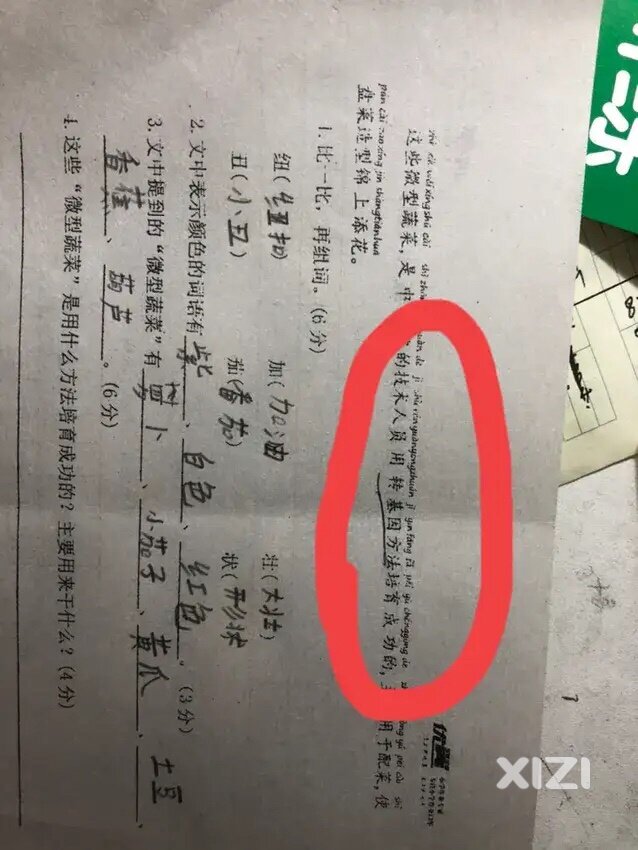 zhè xiē wēi xíng shū cài shì de jì shù rén yuán yòng zhuǎn jī yīn fāng fǎ péi yù chéng gōng de yòng yú pèi cài shǐ
这些微型蔬菜，是中 的技术人员用转基因方法培育成功的，主 用于配菜，使
pán cài zào xíng jǐn shàng tiān huā
盘菜造型锦上添花。
1. 比一比，再组词。(6分)
纽(纽扣 加(加油 壮(大壮)
丑(小丑) 茄(番茄) 状(形状
2. 文中表示颜色的词语有紫、白色、红色。(3分)
3. 文中提到的“微型蔬菜”有 卜、小茄子、黄瓜、土豆、
香蕉、葫芦。(6分)
4. 这些“微型蔬菜”是用什么方法培育成功的？主要用来干什么？(4分)
优翼
XIZI